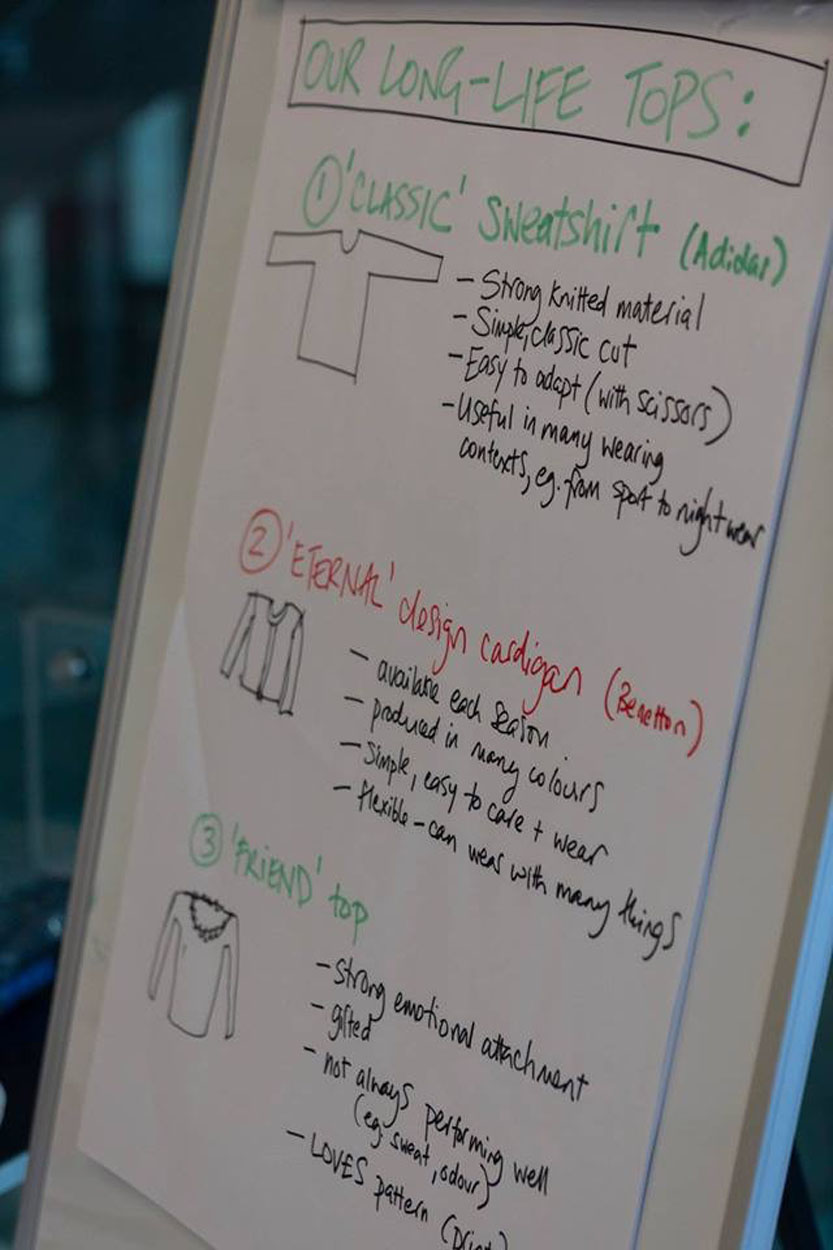 OUR LONG-LIFE TOPS:
① 'CLASSIC' Sweatshirt (Adidas)
- Strong knitted material
- Simple, classic cut
- Easy to adapt (with scissors)
- Useful in many wearing
contexts, eg. from sport to nightwear
② 'ETERNAL' design cardigan (Benetton)
- available each season
- produced in many colours
- Simple, easy to care + wear
- flexible - can wear with many things
③ 'FRIEND' top
- strong emotional attachment
- gifted
- not always performing well
(eg. sweat, odour)
- LOVES pattern (print)